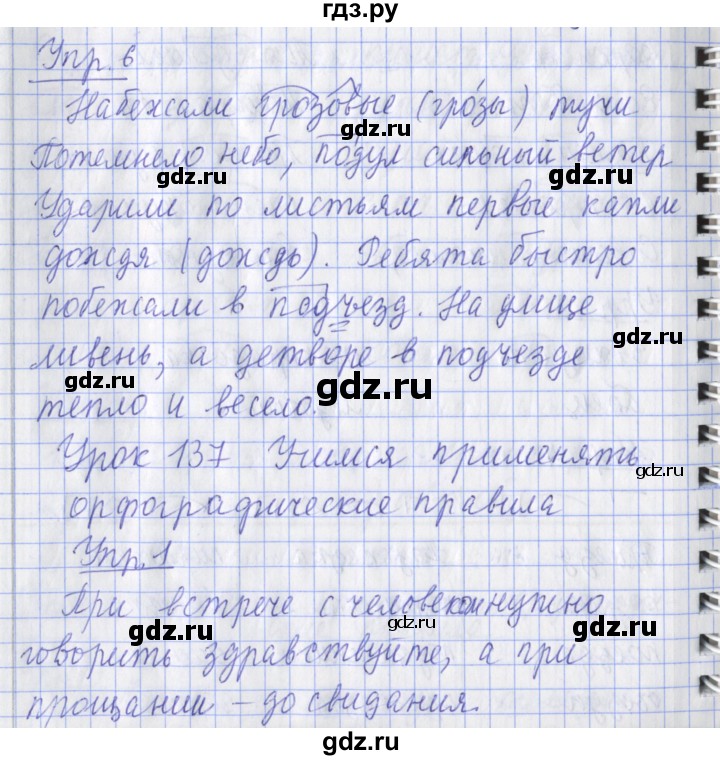 гдз.ру
Упр. 6
Набежали грозовые (грозы) тучи
gdz.ru
Потемнело небо, подул сильный ветер
gdz.ru gdz.ru
Ударили по листьям первые капли
дождя (дождь). Ребята быстро
gdz.ru
побежали в подъезд. На улице
gdz.ru
ливень, а детворе в подъезде
gdz.ru gdz.ru
тепло и весело.
Урок 137 Учимся применять
gdz.ru
орфографические правила
Упр. 1
При встрече с человеком нужно
gdz.ru gdz.ru gdz.ru
говорить здравствуйте, а при
прощании – до свидания.
gdz.ru